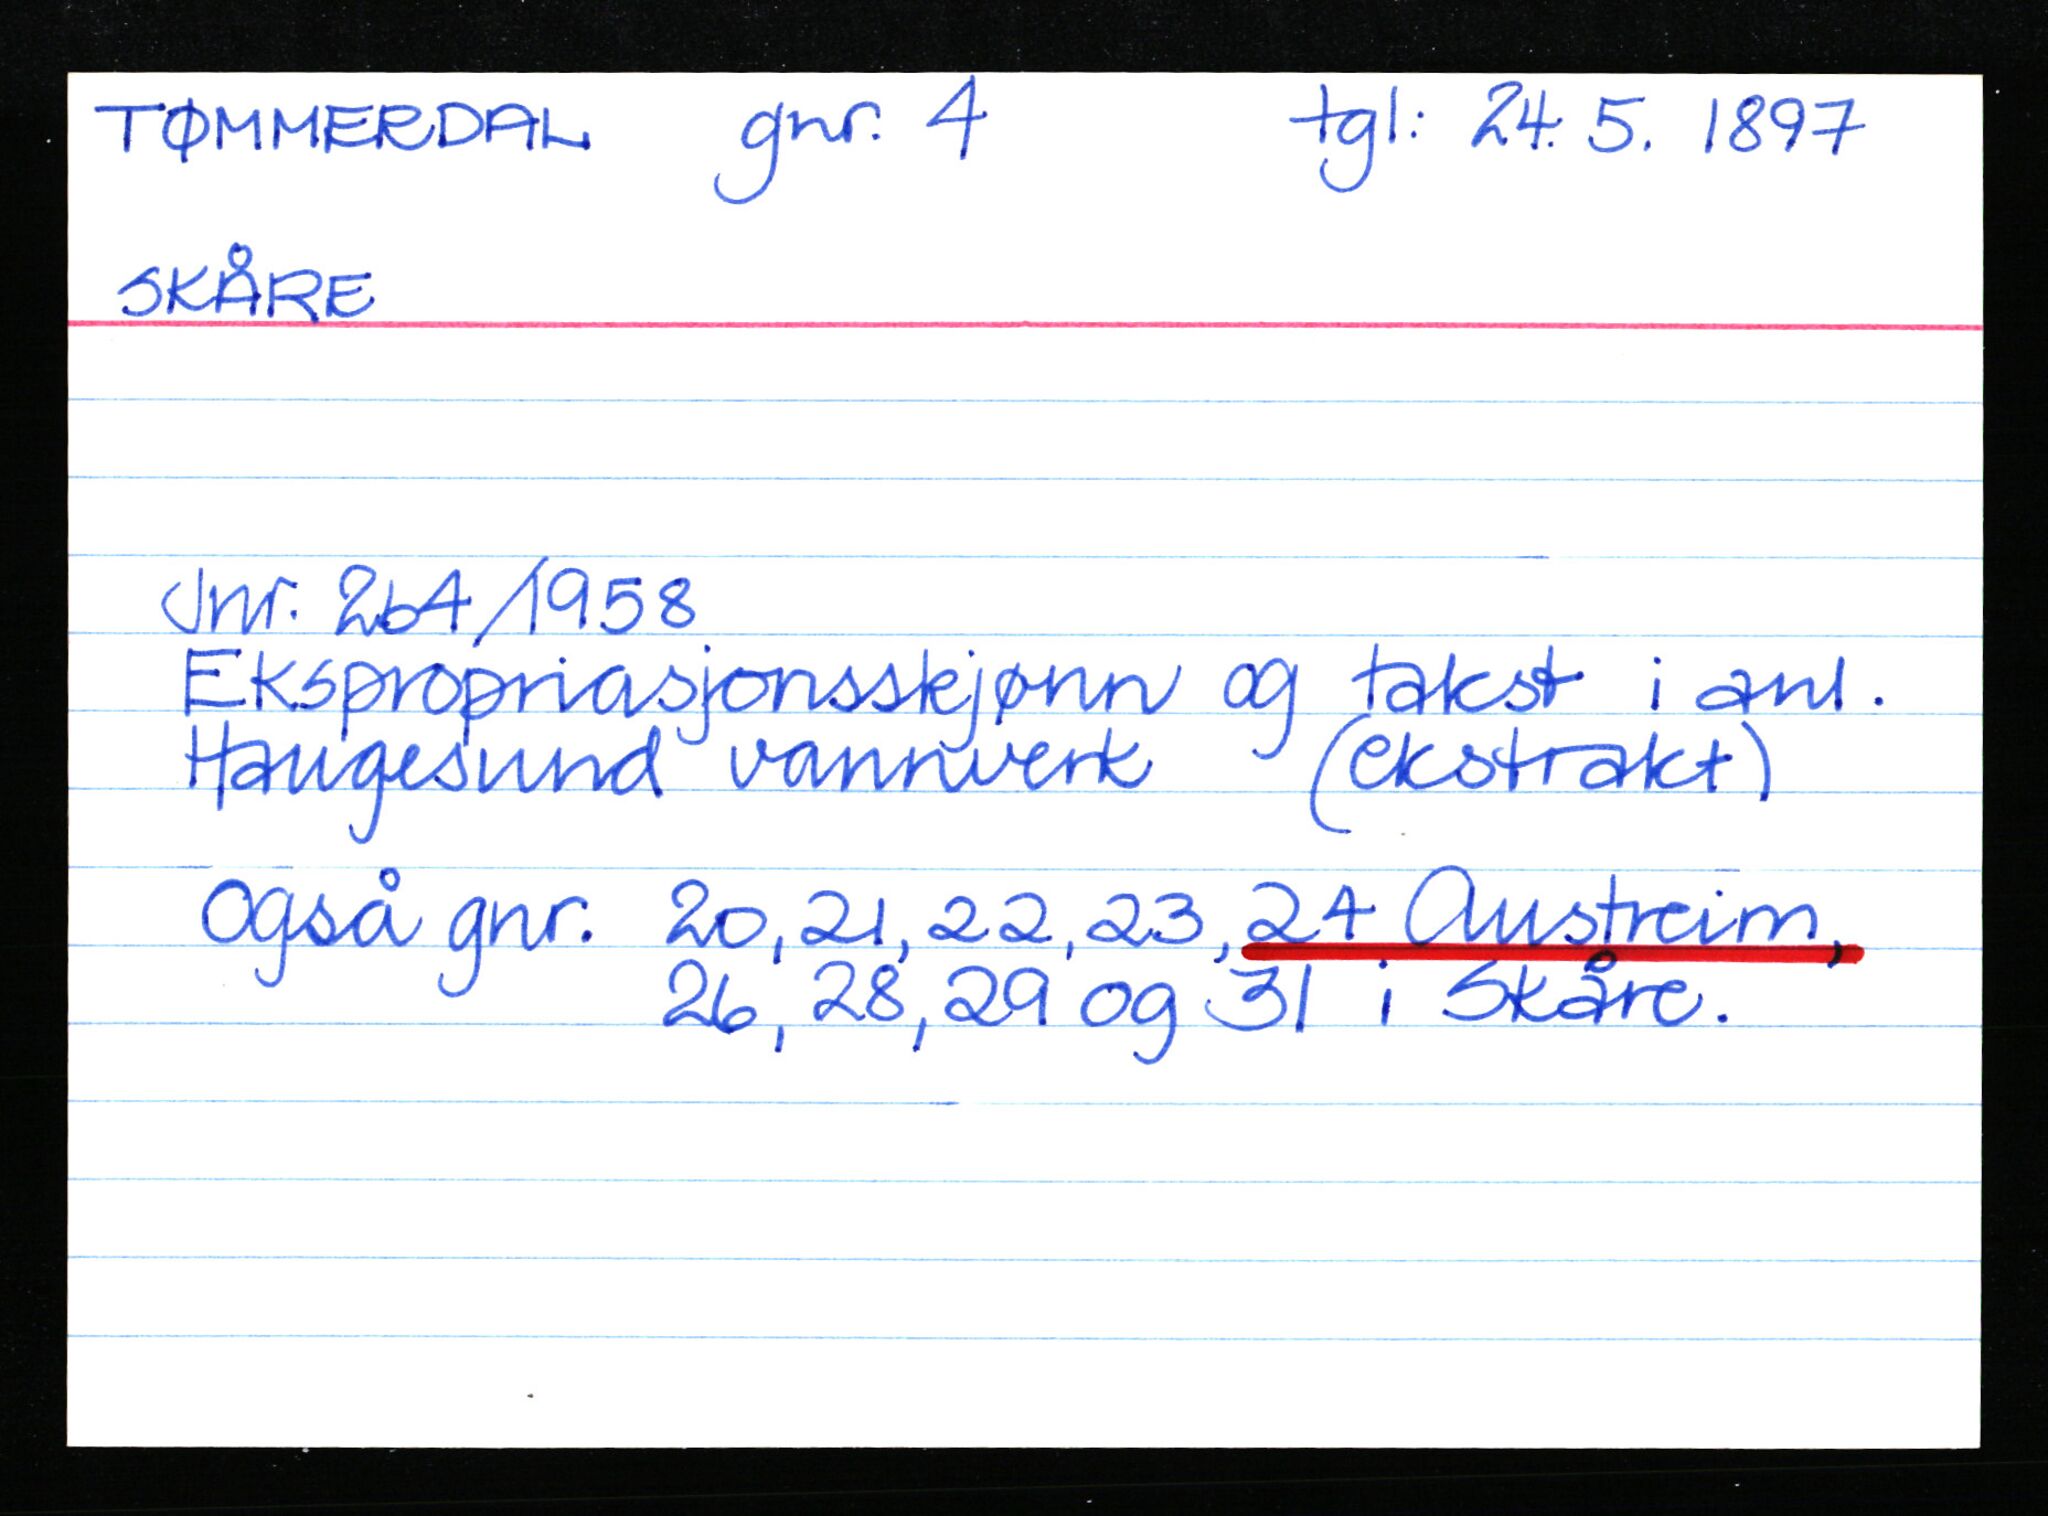 TØMMERDAL gnr. 4 tgl: 24.5. 1897
SKÅRE
Jnr. 264/1958
Ekspropriasjonsskjønn og takst i anl.
Haugesund vannverk (ekstrakt)
Også gnr. 20, 21, 22, 23, 24 Austreim,
26, 28, 29 og 31 i Skåre.